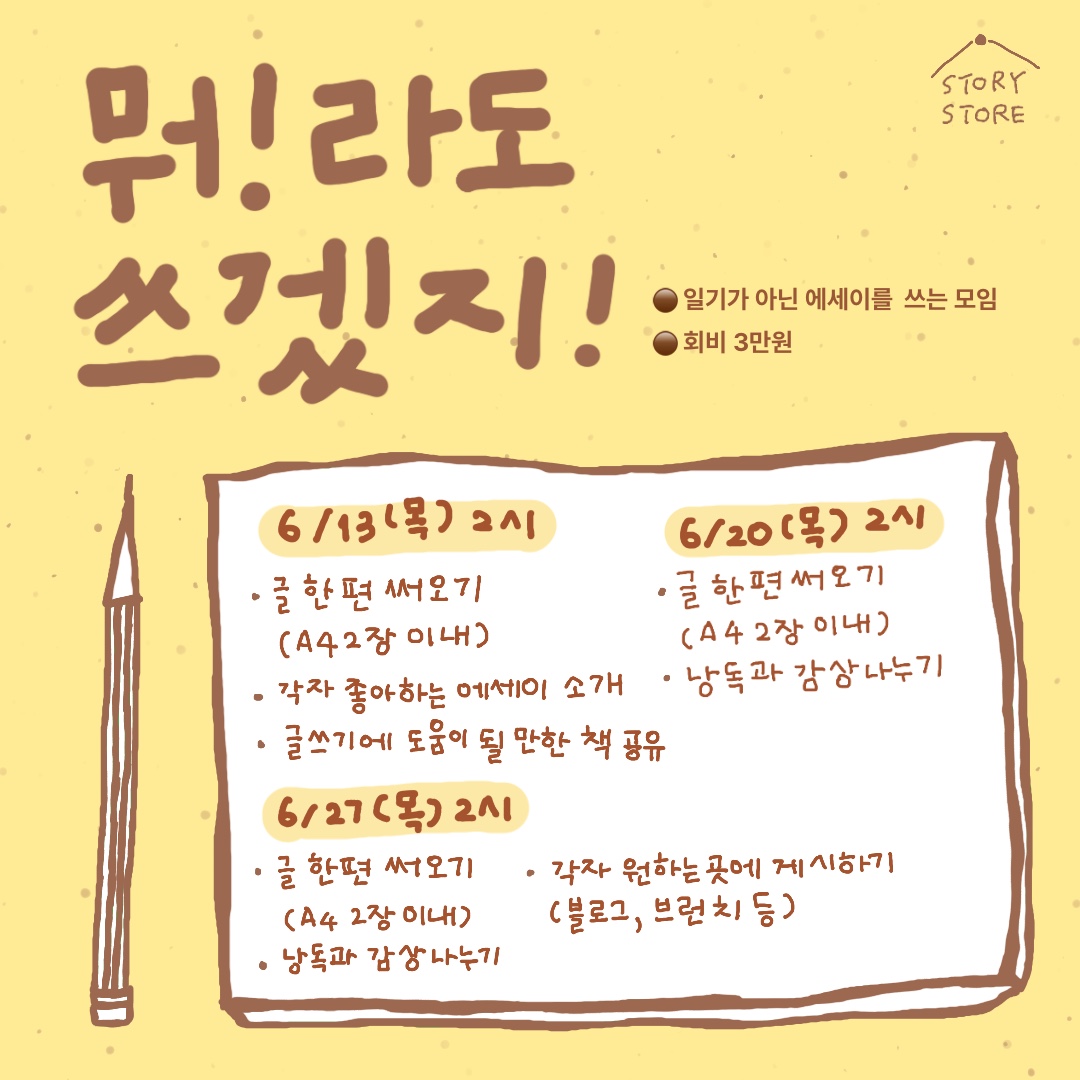 뭐!라도
쓰겠지!
STORY
STORE
일기가 아닌 에세이를 쓰는 모임
회비 3만원
6/13(목) 2시
· 글 한편 써오기
(A4 2장 이내)
· 각자 좋아하는 에세이 소개
· 글쓰기에 도움이 될 만한 책 공유
6/20(목) 2시
· 글 한편 써오기
(A4 2장 이내)
· 낭독과 감상나누기
6/27(목) 2시
· 글 한편 써오기
(A4 2장 이내)
· 낭독과 감상나누기
· 각자 원하는곳에 게시하기
(블로그, 브런치 등)